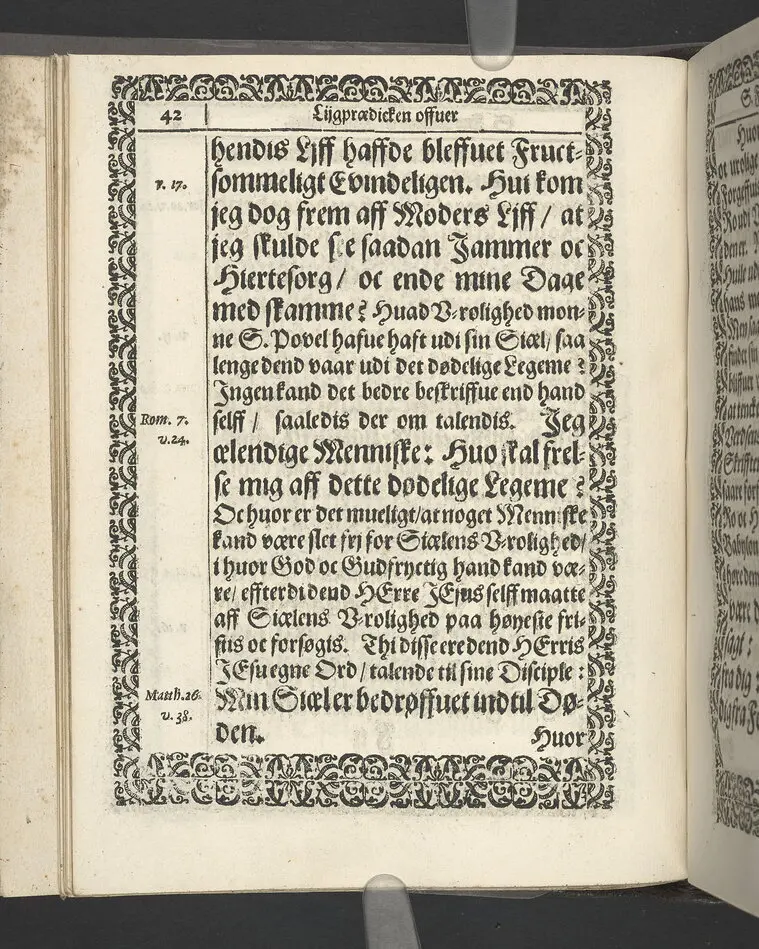 42
Lijgprædicken offuer
hendis Liff haffde bleffuet Fruct-
v. 17.
sommeligt Evindeligen. Hui kom
jeg dog frem aff Moders Liff / at
jeg skulde see saadan Jammer oc
Hiertesorg / oc ende mine Dage
med skamme? Huad V-rolighed mon-
ne S. Povel hafue haft udi sin Siæl / saa
lenge dend vaar udi det dødelige Legeme?
Ingen kand det bedre beskriffue end hand
Rom. 7.
v. 24.
selff / saaledis der om talendis. Jeg
ælendige Menniske: Huo skal frel-
se mig aff dette dødelige Legeme?
Oc huor er det mueligt / at noget Menniske
kand være slet frj for Siælens V-rolighed /
i huor God oc Gudfryctig hand kand væ-
re / effterdi dend HErre JEsus selff maatte
aff Siælens V-rolighed paa høyeste fri-
stis oc forsøgis. Thi disse ere dend HErris
JEsu egne Ord / talende til sine Disciple:
Matth. 26.
v. 38.
Min Siæl er bedrøffuet indtil Dø-
den.
Huor